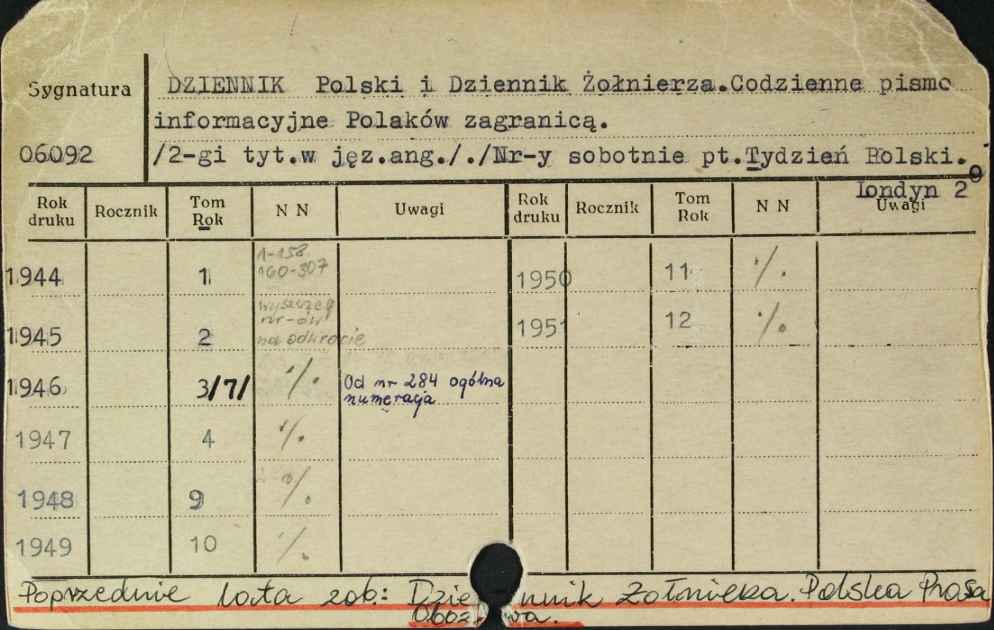 Sygnatura DZIENNIK Polski i Dziennik Żołnierza.Codzienne pismo
informacyjne Polaków zagranicą.
06092 /2-gi tyt.w jęz.ang././Nr-y sobotnie pt.Tydzień Polski.
Londyn 2º
Rok druku Rocznik Tom Rok N N Uwagi Rok druku Rocznik Tom Rok N N Uwagi
1944 1 1-158 160-307 1950 11 %.
1945 2 wyszczeg nr-ów na odwrocie 1951 12 %.
1946 3/7/ %. Od nr 284 ogólna numeracja
1947 4 %.
1948 9 %.
1949 10 %.
Poprzednie lata zob: Dziennik Żołnierza. Polska Prasa